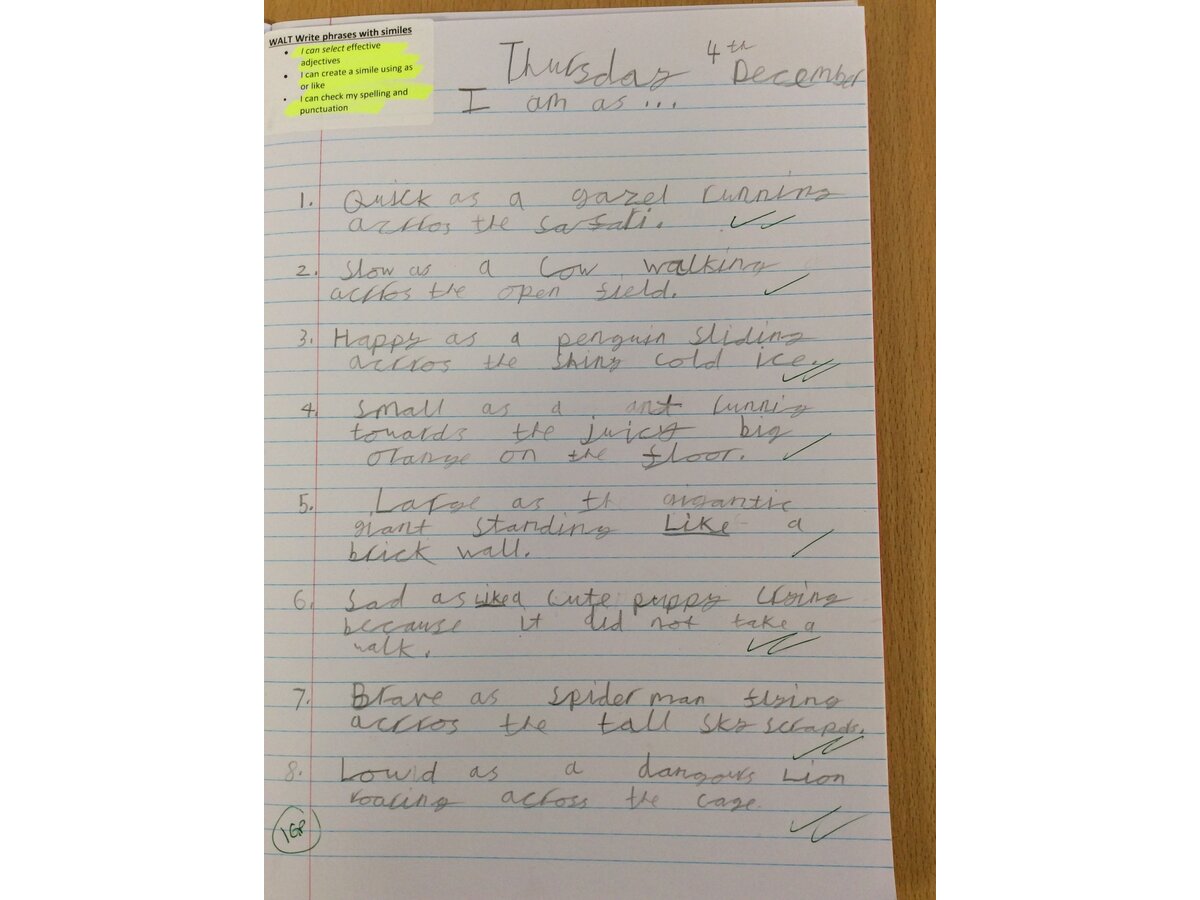 WALT Write phrases with similes
• I can select effective
adjectives
• I can create a simile using as
or like
• I can check my spelling and
punctuation
Thursday 4th December
I am as ...
1. Quick as a gazel running
accros the safari.
2. Slow as a cow walking
accros the open field.
3. Happy as a penguin sliding
accros the shiny cold ice.
4. Small as a ant runnig
towards the juicy big
orange on the floor.
5. Large as th gigantic
giant standing Like a
brick wall.
6. Sad as like a cute puppy crying
because it did not take a
walk.
7. Brave as spider man flying
accros the tall sky scrapers.
8. Lowd as a dangours Lion
roaring across the cage.
1GP